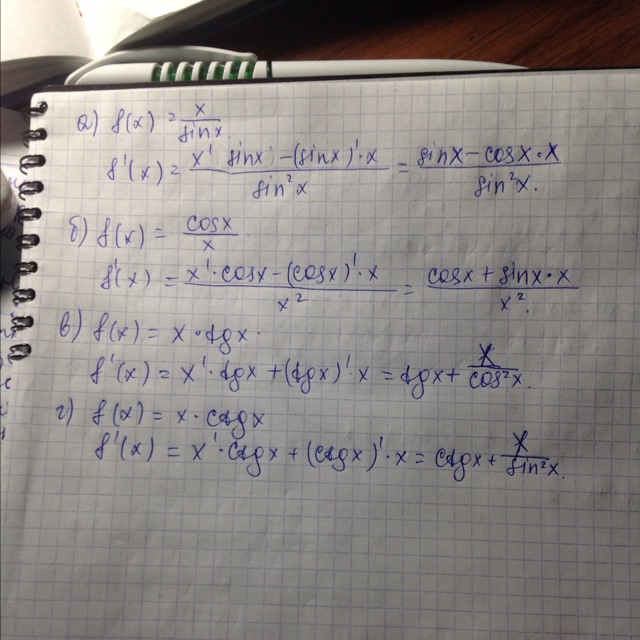 а) f(x) = x/sinx
f'(x) = (x' sinx - (sinx)'·x)/sin²x = (sinx - cosx·x)/sin²x.
б) f(x) = cosx/x
f'(x) = (x'·cosx - (cosx)'·x)/x² = (cosx + sinx·x)/x².
в) f(x) = x·tgx.
f'(x) = x'·tgx + (tgx)'·x = tgx + x/cos²x.
г) f(x) = x·ctgx
f'(x) = x'·ctgx + (ctgx)'·x = ctgx + x/sin²x.